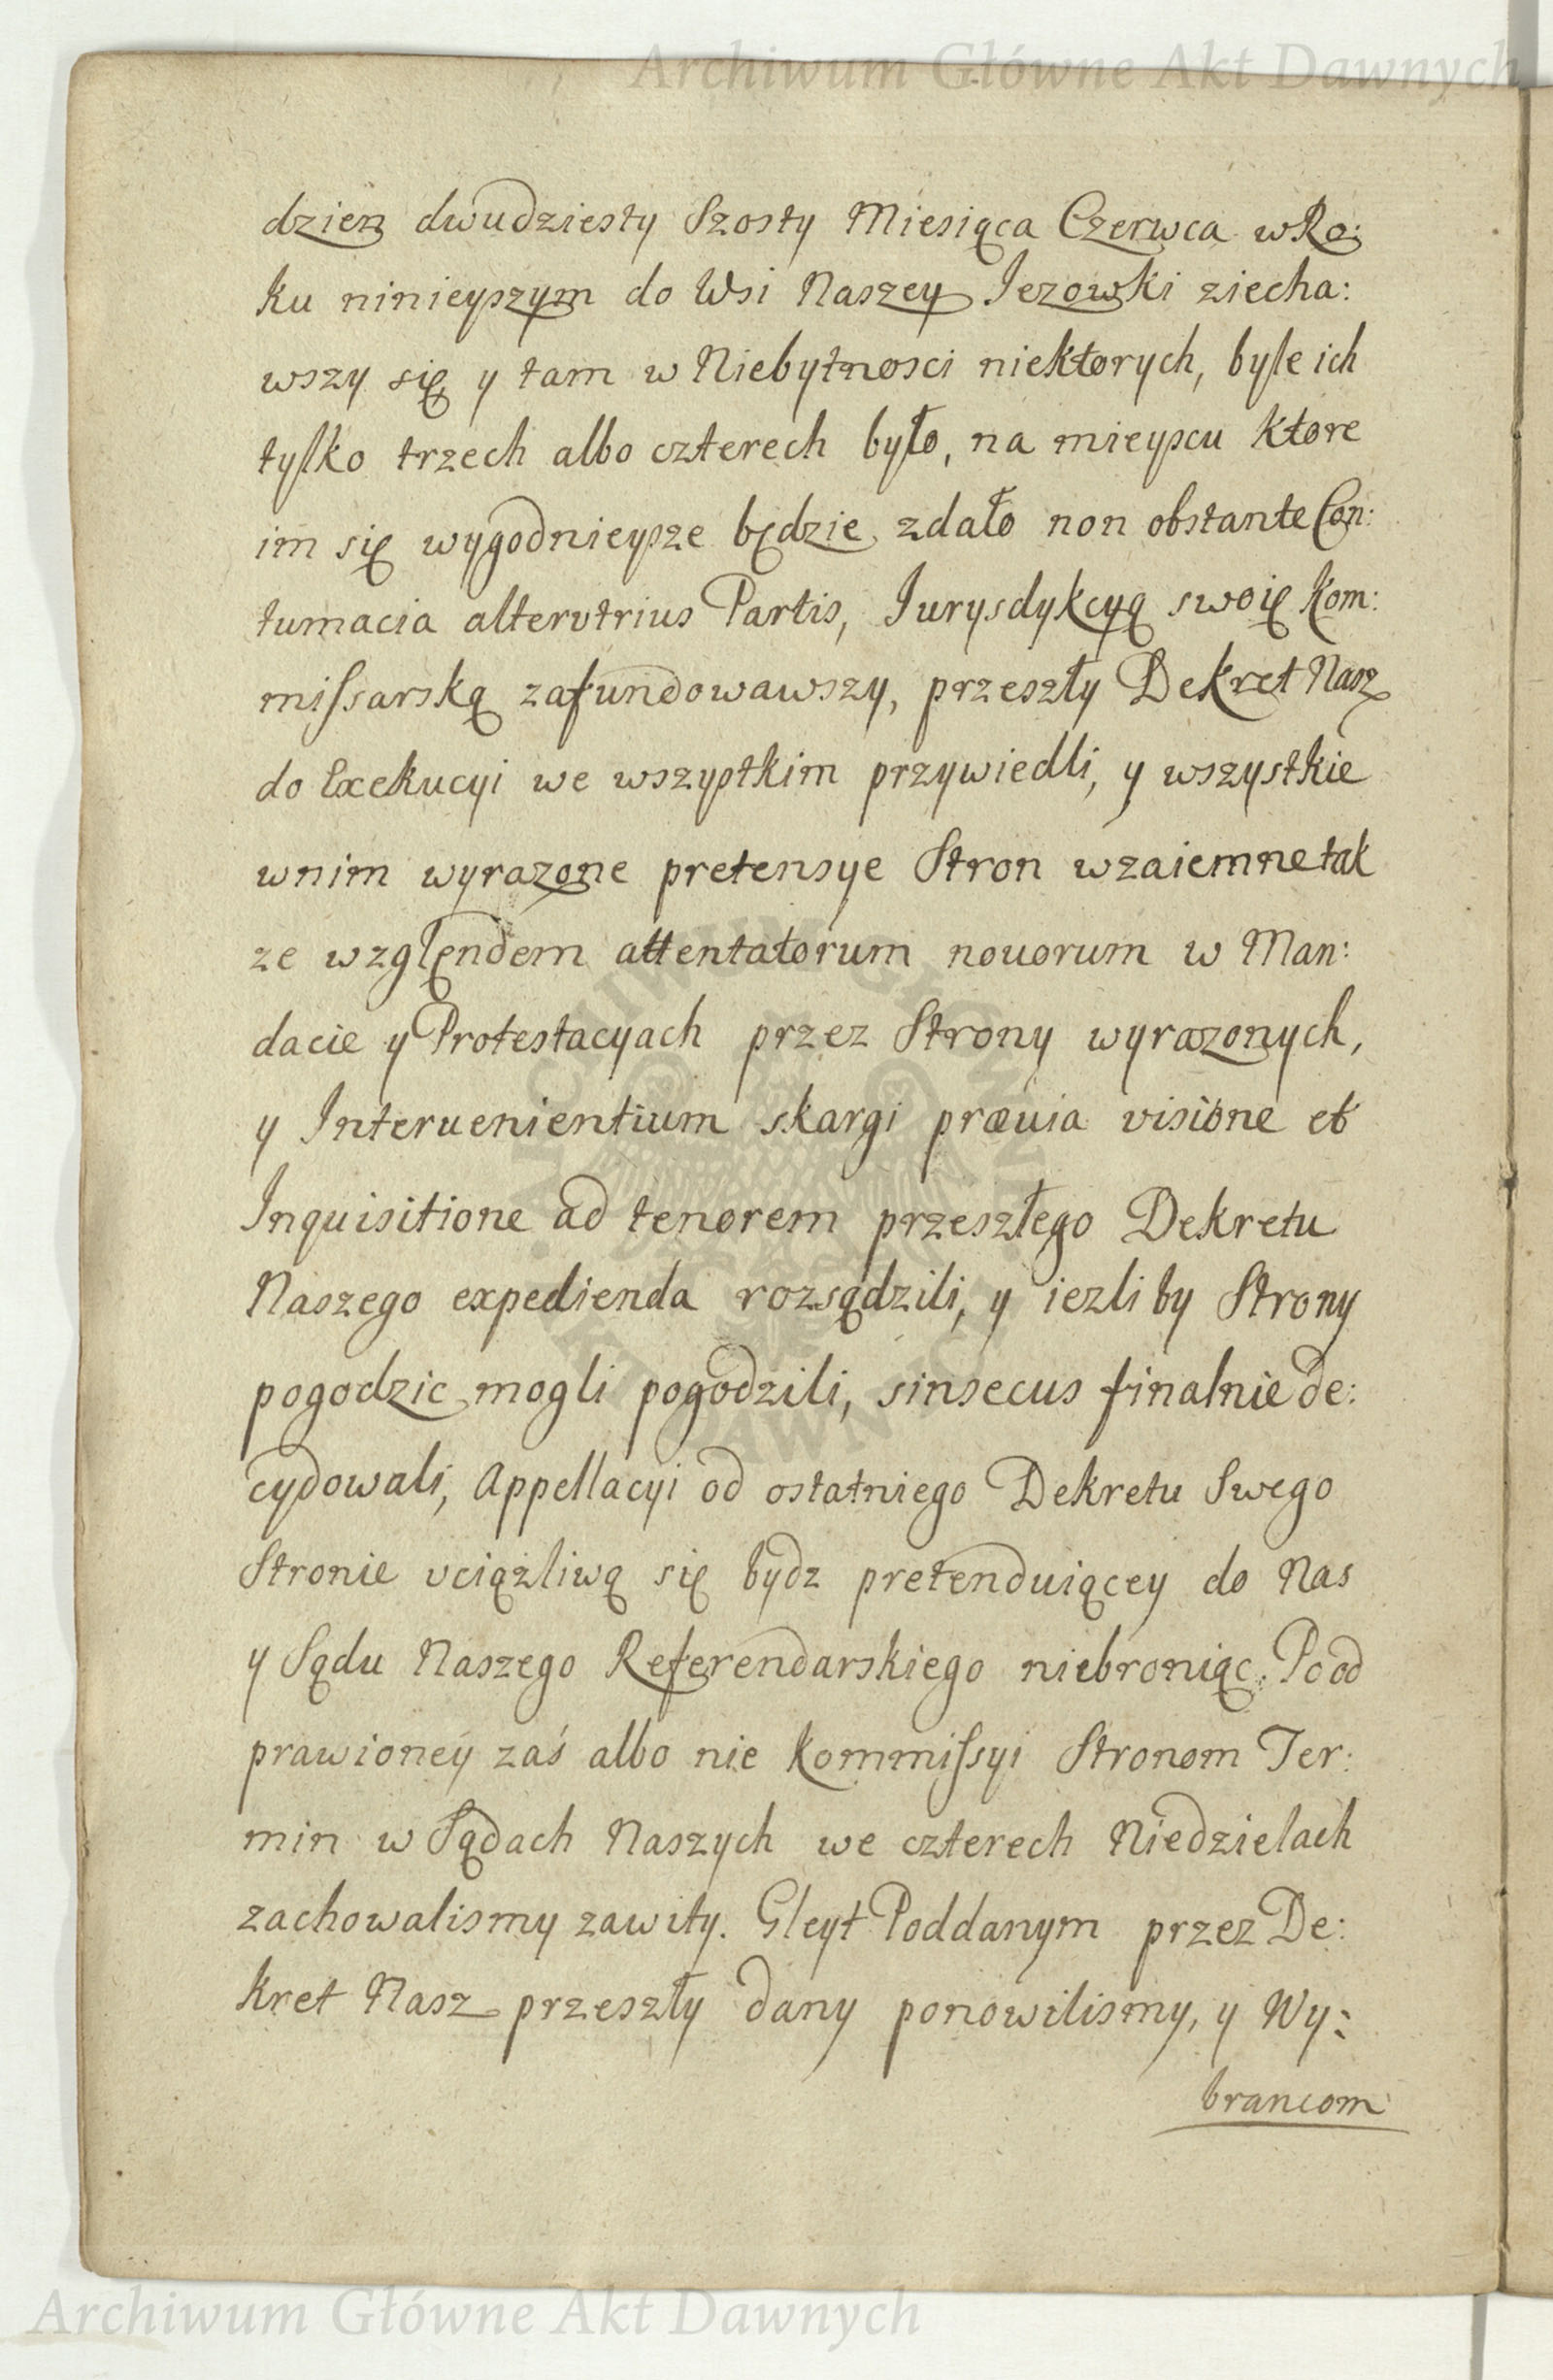 Archiwum Główne Akt Dawnych
dzien dwudziesty Szosty Miesiąca Czerwca w Ro:
ku ninieyszym do Wsi Naszey Jezowski ziecha:
wszy się y tam w Niebytnosci niektorych, byle ich
tylko trzech albo czterech było, na mieyscu ktore
im się wygodnieysze będzie zdało non obstante Con:
tumacia alterutrius Partis, Jurysdykcyą swoię Kom:
missarską zafundowawszy, przeszły Dekret Nasz
do Exekucyi we wszystkim przywiedli, y wszystkie
w nim wyrazone pretensye Stron wzaiemne tak
ze wzglęndem attentatorum nouorum w Man:
dacie y Protestacyach przez Strony wyrazonych,
y Interuenientium skargi præuia visione et
Inquisitione ad tenorem przeszłego Dekretu
Naszego expedienda rozsądzili, y iezli by Strony
pogodzic mogli pogodzili, sinsecus finalnie de:
cydowali, Appellacyi od ostatniego Dekretu Swego
Stronie vciążliwą się bydz pretenduiącey do Nas
y Sądu Naszego Referendarskiego niebroniąc. Po od
prawioney zaś albo nie Kommissyi Stronom Ter:
min w Sądach Naszych we czterech Niedzielach
zachowalismy zawity. Gleyt Poddanym przez De:
kret Nasz przeszły dany ponowilismy, y Wy:
brancom
Archiwum Główne Akt Dawnych